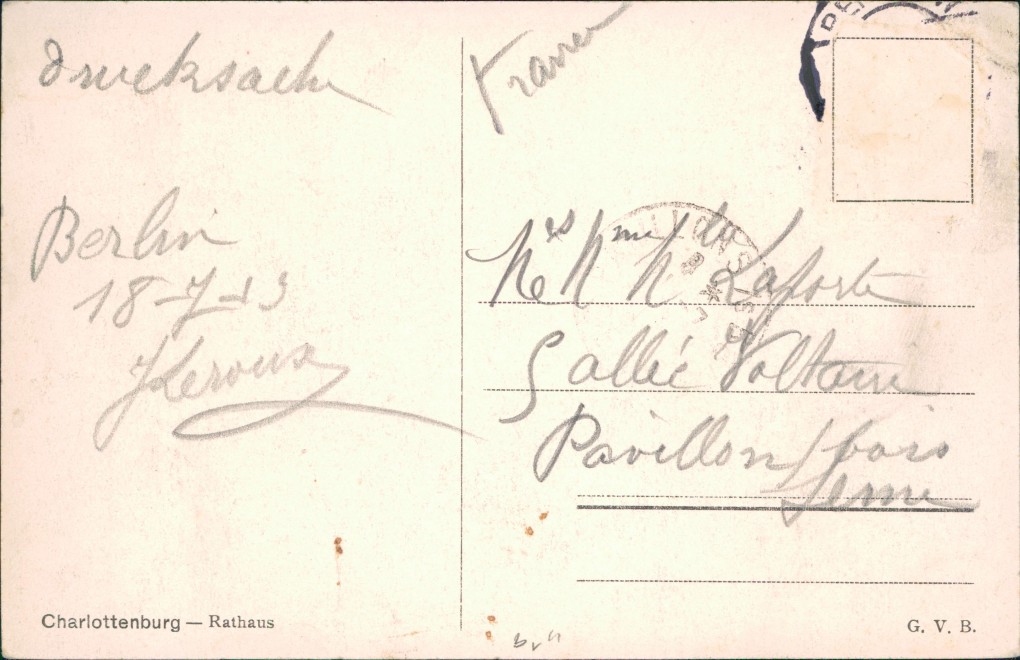 Drucksache
Berlin
18-7-13
JLeroux
France
Laporte
5 allée Voltaire
Pavillons s/ bois
Seine
Charlottenburg — Rathaus
G. V. B.